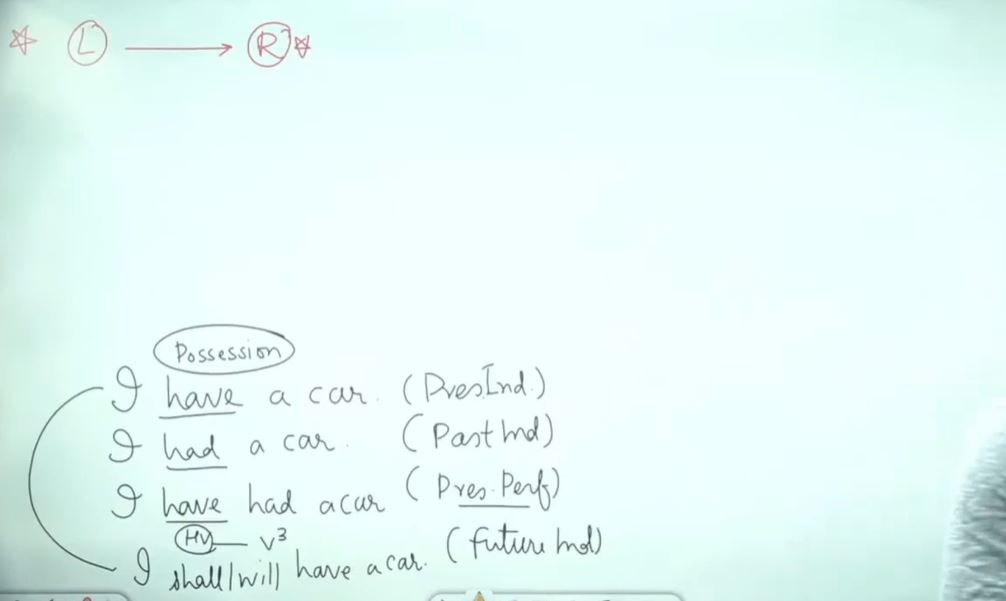 L → R
Possession
I have a car. (Pres Ind.)
I had a car. (Past Ind)
I have had a car (Pres. Perf)
HV — V³
I shall/will have a car. (future Ind)